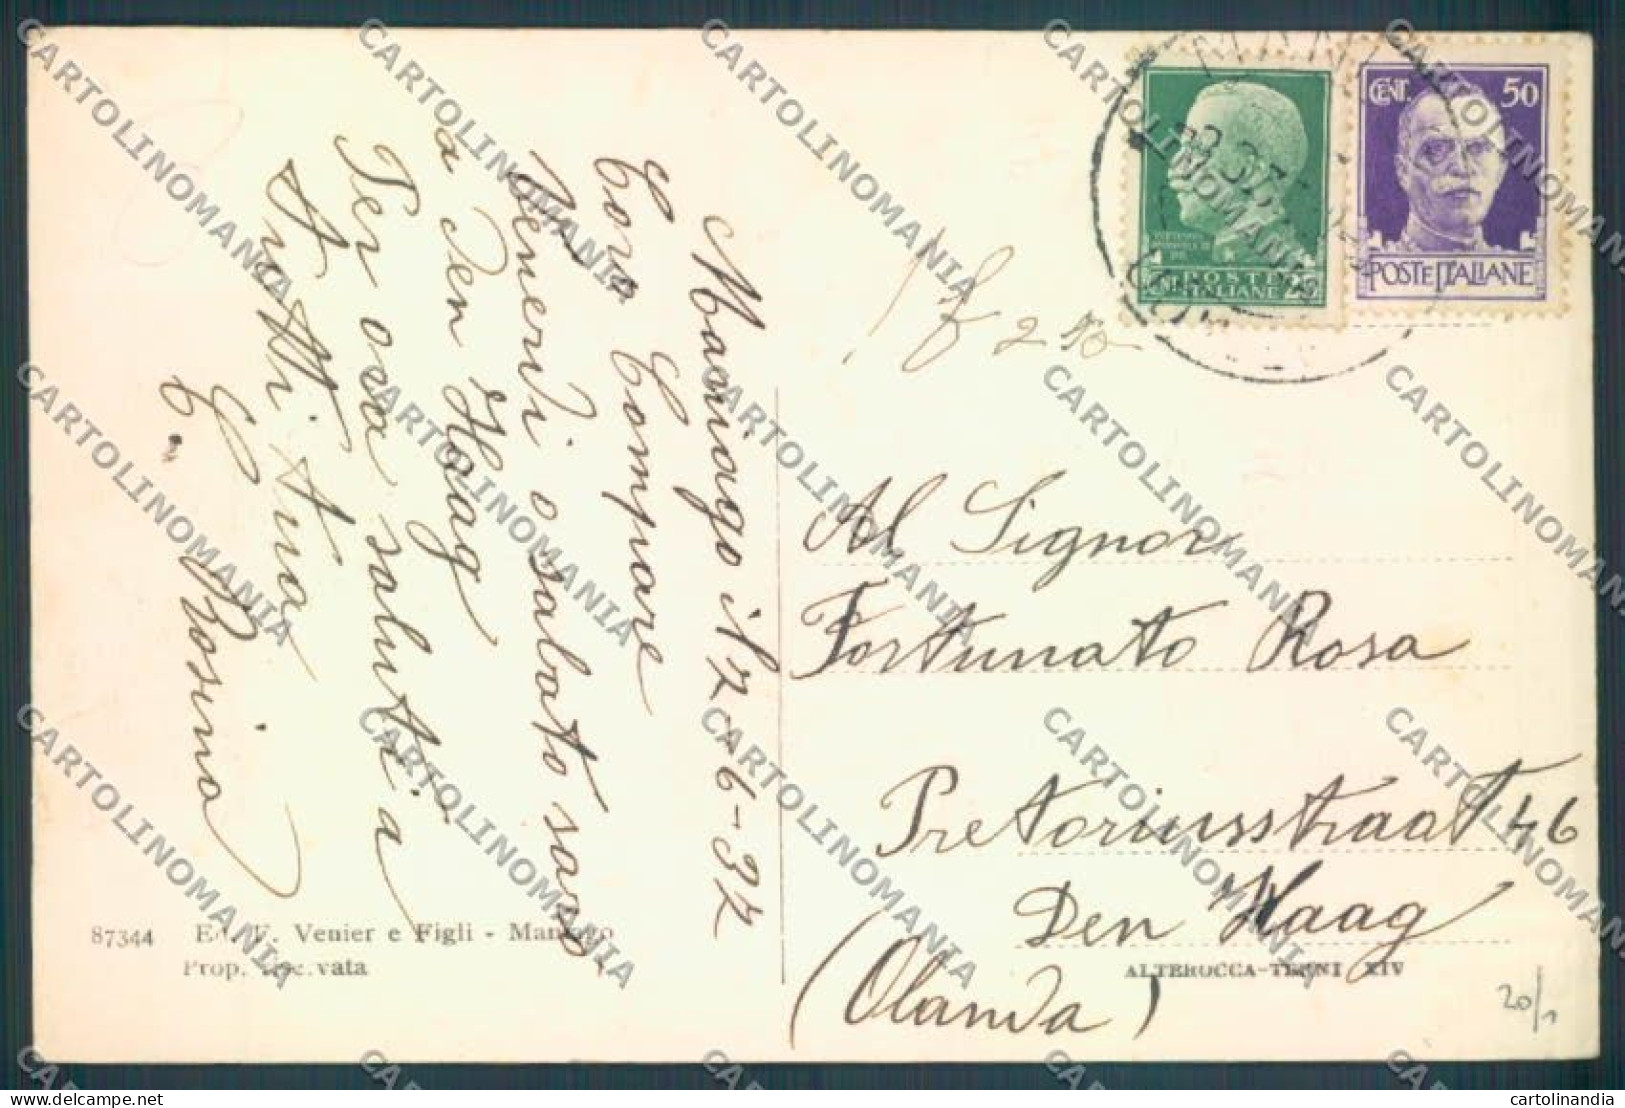 Maniago il 2-6-37
Caro Compare
Venerdì o sabato sarò
a Den Haag
Per ora saluti a
tutti tua
C. Rosina
87344 Ed. F. Venier e Figli - Maniago
Prop. riservata
CENT. 50
POSTE ITALIANE
CENT. 25
POSTE
ITALIANE
Al Signor
Fortunato Rosa
Pretoriusstraat 46
Den Haag
(Olanda)
ALTEROCCA-TERNI XIV
20/1
CARTOLINOMANIA
cartolinandia